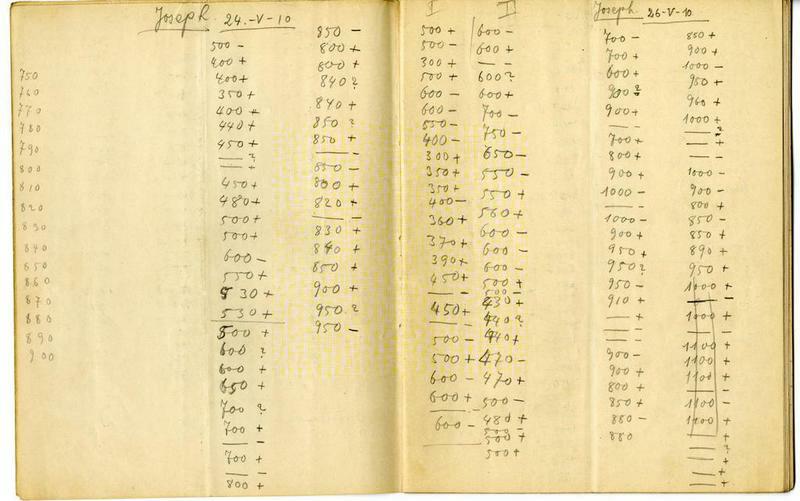 Joseph 24.-V-10
750
760
770
780
790
800
810
820
830
840
850
860
870
880
890
900
500 -
400 +
400 +
350 +
400 +
440 +
450 +
— ?
— +
450 +
480 +
500 +
500 +
600 -
550 +
530 +
530 +
500 +
600 ?
600 +
650 +
700 ?
700 +
— -
700 +
— -
800 +
850 -
800 +
800 +
840 ?
840 +
850 ?
850 +
— -
850 -
800 +
820 +
— -
830 +
840 +
850 +
900 +
950 ?
950 -
I
500 +
500 -
300 +
500 +
600 -
600 -
550 -
400 -
300 +
350 +
350 +
400 -
360 +
370 +
390 +
450 +
— -
450 +
— -
500 -
500 +
600 -
600 +
— -
600 -
II
600 -
600 +
— -
600 ?
600 +
700 -
750 -
650 -
550 -
550 +
560 +
600 -
600 -
600 -
500 +
500 -
430 +
440 ?
440 +
470 -
470 +
500 -
480 +
500 -
500 +
500 +
Joseph 26-V-10
700 -
700 +
600 +
900 ?
900 +
— -
700 +
800 +
900 +
1000 -
— -
1000 -
900 +
950 +
950 ?
950 -
910 +
— +
— -
— -
900 -
900 +
800 +
850 +
880 -
880
850 +
900 +
1000 -
950 +
960 +
1000 +
— ?
— +
— -
1000 -
900 -
800 +
850 -
850 +
890 +
950 +
1000 +
— -
1000 +
— -
1100 +
1100 +
1100 +
— -
1100 -
1100 +
— +
— ?
— +
— +
— +